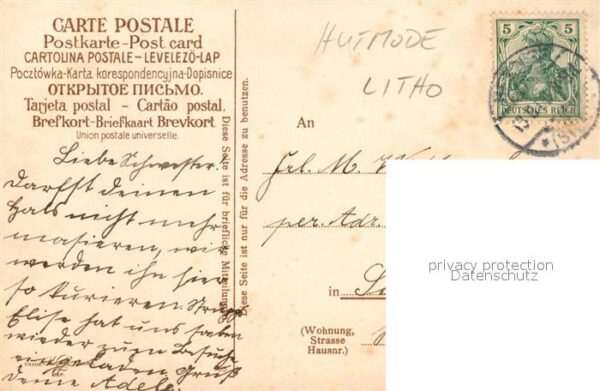 CARTE POSTALE
Postkarte-Post card
CARTOLINA POSTALE-LEVELEZŐ-LAP
Pocztówka-Karta korespondencyjna-Dopisnice
ОТКРЫТОЕ ПИСЬМО.
Tarjeta postal - Cartão postal.
Brefkort-Briefkaart Brevkort.
Union postale universelle.
Liebe Schwester!
Darfst deinen
Hals nicht mehr
masieren, wir
werden ihn hier
so kurieren.
Elise hat uns
wieder zum Besuche
eingeladen Gruß
deine Adele
Diese Seite ist für briefliche Mitteilungen
Diese Seite ist nur für die Adresse zu benutzen.
HUTMODE
LITHO
5 5
DEUTSCHES REICH
An
Frl. M.
per. Adr.
in
(Wohnung,
Strasse
Hausnr.)
privacy protection
Datenschutz